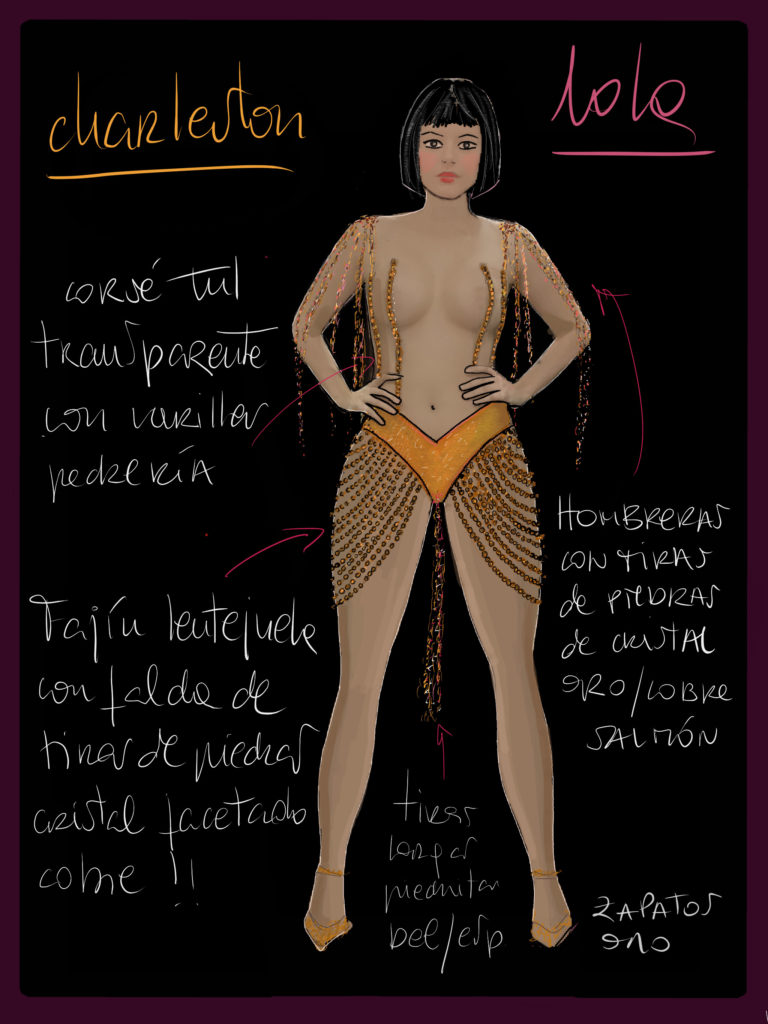 charleston
lola
corsé tul
transparente
con varillas
pedrería
HOMBRERAS
CON TIRAS
de PIEDRAS
de CRISTAL
ORO/COBRE
SALMÓN
Fajín lentejuela
con falda de
tiras de piedras
cristal facetado
cobre !!
tiras
largas
piedritas
del/esp
ZAPATOS
ORO